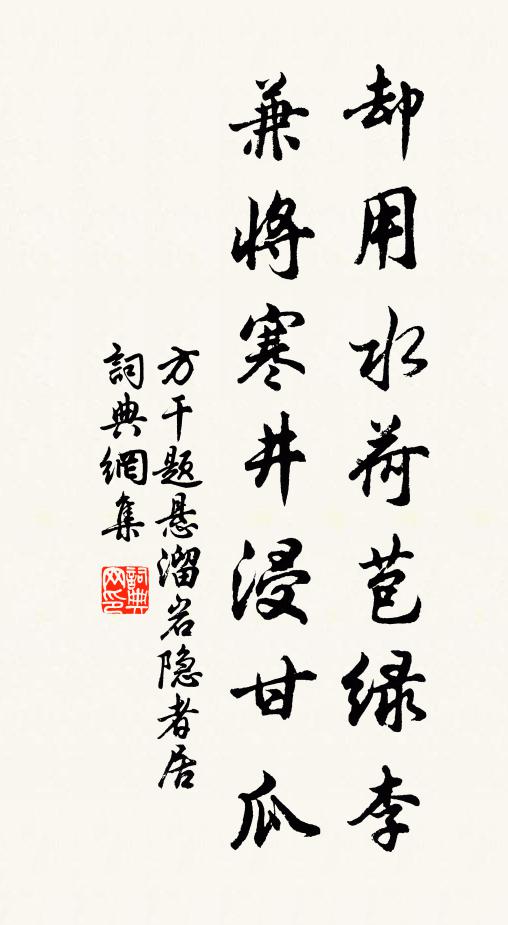 却用水荷苞绿李
兼将寒井浸甘瓜
方干题悬溜岩隐者居
詞典網集
詞典
网印